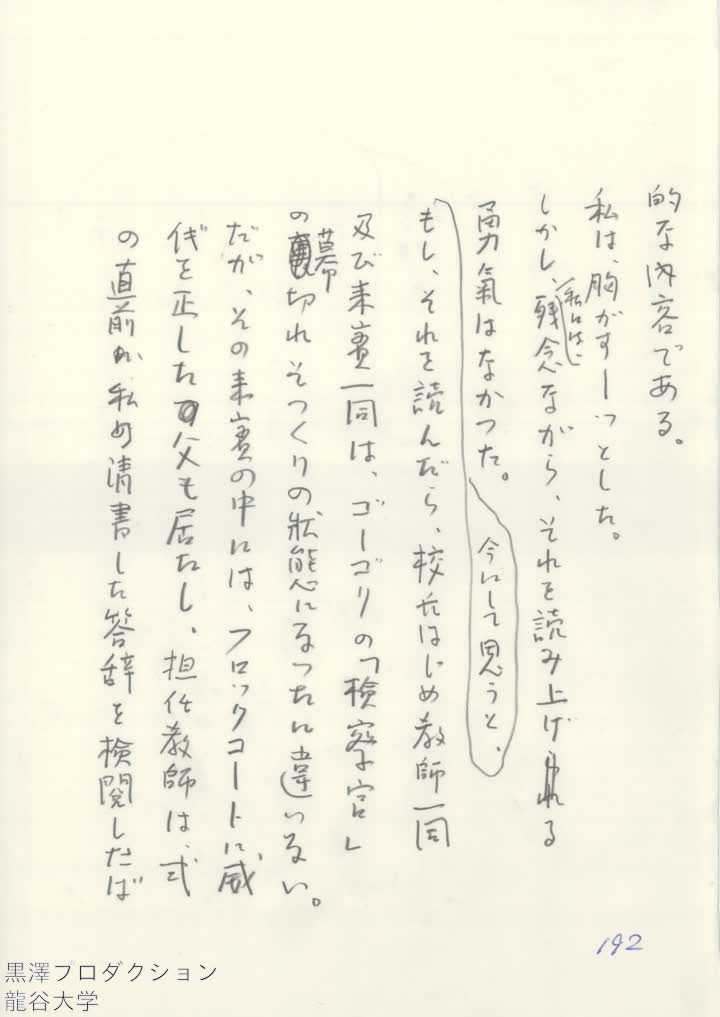 的な内容である。
私は、胸がすーっとした。
しかし、私には、残念ながら、それを読み上げる
勇氣はなかった。今にして思うと、
もし、それを読んだら、校長はじめ教師一同
及び来賓一同は、ゴーゴリの「検察官」
の幕切れそっくりの狀態になったに違いない。
だが、その来賓の中には、フロックコートに威
儀を正した父も居たし、担任教師は、式
の直前に私の清書した答辞を検閲したば
192
黒澤プロダクション
龍谷大学